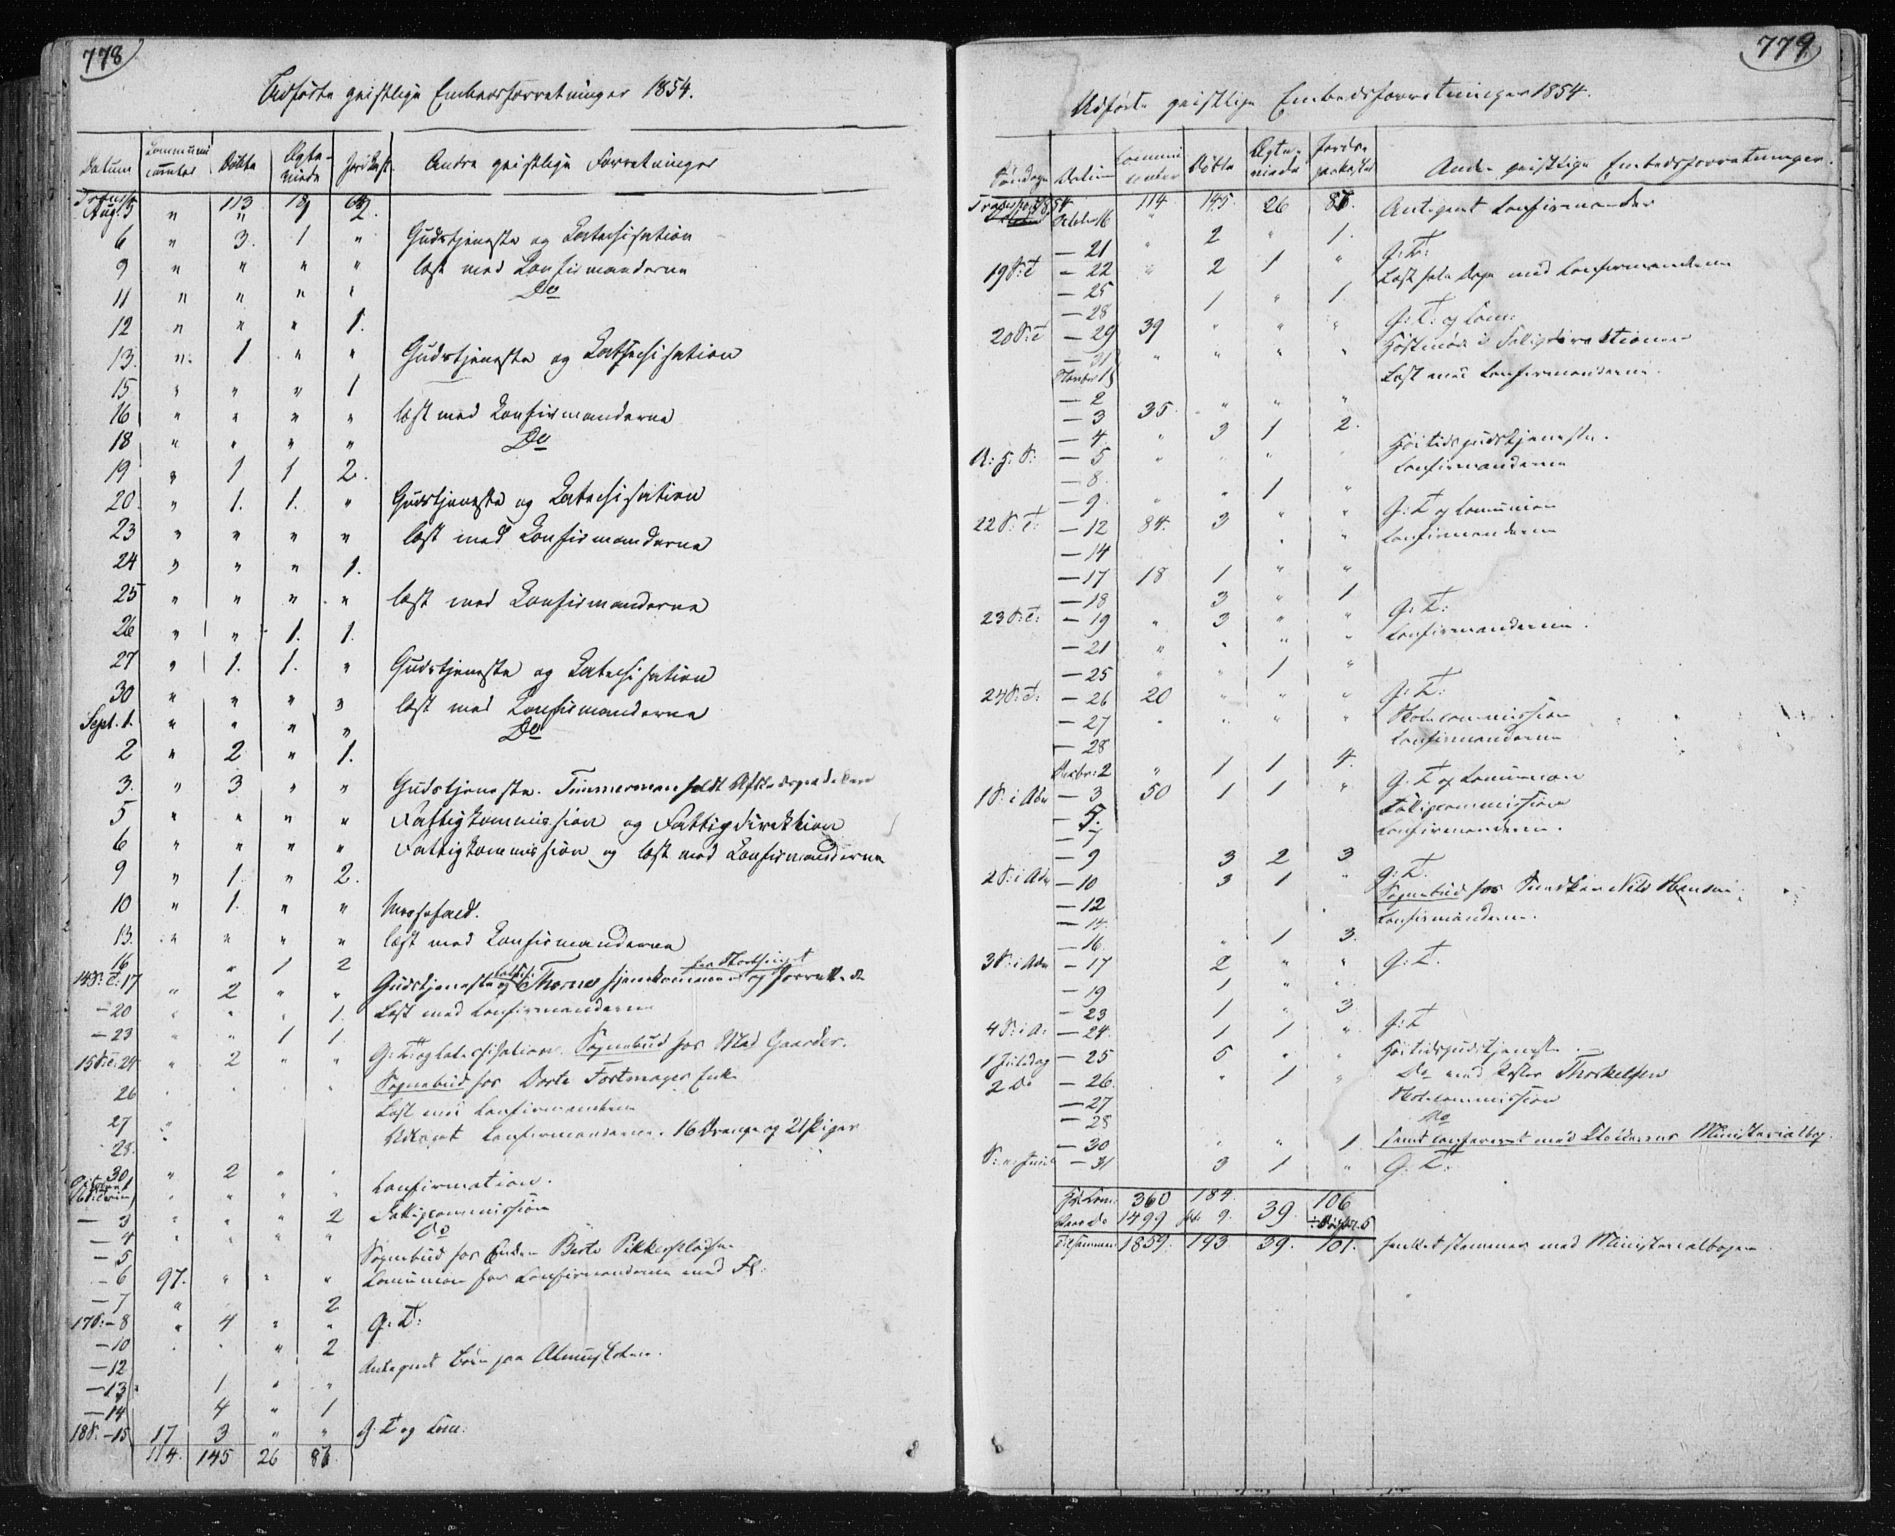 778
Udførte geistlige Embedsforretninger 1854.
Datum Communicanter Døbte Ægteviede Jordfæst. Andre geistlige Forretninger
Transp. 113 18
Aug. 5 " "
6 " 3. 1 " Gudstjeneste og Catechisation
9 " " " " læst med Confirmanderne
11 " " " " Do
12 " " " 1.
13. " 1 " " Gudstjeneste og Catechisation
15 " " " 1
16 " " " " læst med Confirmanderne
18 " " " " Do
19 " 1 1 2.
20 " 1. 1. " Gudstjeneste og Catechisation
23 " " " " læst med Confirmanderne
24 " " " 1.
25 " " " " læst med Confirmanderne
26 " " 1. 1.
27 " 1. 1. " Gudstjeneste og Catechisation
30 " " " " læst med Confirmanderne
Sept. 1. " " " " Do
2 " 2 " 1.
3. " 3 " " Gudstjeneste. Timmerman holdt Afskedsprædiken
5 " " " " Fattigkommission og Fattigdirektion
6 " " " " Fattigkommission og læst med Confirmanderne
9 " 1. " 2.
10 " 1. " " Messefald.
13. " " " " læst med Confirmanderne
16 " 1 2
14 S: T: 17 " 2 " " Gudstjeneste og Catechis: Thorne hjemkommen fra Storthinget og forrettede
– 20 " " " 1. Læst med Confirmanderne
– 23 " " 1 1.
15 S: T: 24 " 2 " " G: T: og Catechisation. Sognebud hos Mad Gaarder.
26 Sognebud hos Dorte Fortmager Enke
27 Læst med Confirmanderne
28. Udtaget Confirmanderne. 16 Drenge og 21 Piger
– 30 " 2 " "
October 1 " " " " Confirmation.
– 3 " " " 2 Fattigcommission
– 4 " " " " Do
– 5 Sognebud hos Enken Berte
– 6 97. " " " Communion for Confirmanderne med Fl:
– 7 " 2
17 S: – 8 " 4 " " G: T:
– 10 " 2
– 12 Antegnet Børn paa Almuskolen.
– 13 1 " "
– 14 4 " 1
18 S. – 15 17 3 " " G: T og Com:
114. 145 26 86
779
Udførte geistlige Embedsforretninger 1854.
Søndage Datum Communicanter Døbte Ægteviede Jordspaakastede Andre geistlige Embedsforretninger.
Transport 114 145. 26 86. Antegnet Confirmander
October 16 "
– 21 " 2 " 1. G: T:
19 S: T – 22 " 2 1 " Læst hele Dage med Confirmanderne
– 25
– 28 1 " 1. G: T: og Com:
20 S: T – 29 39 " " " Høstmøde i Fattigdirektionen
– 31 " " " "
November 1 Læst med Confirmanderne.
– 2
– 3 35. " " "
– 4. " 3 1 2. Høitidsgudstjeneste.
A: H: S: – 5 " " " " Confirmanderne
– 8.
– 9. " " 1 " G: T og Communion
22 S: T: – 12 84. 3 " " Confirmanderne
– 14 " "
– 17 18 1 " "
– 18 3 " 1 G: T:
23 S: T: – 19 " 3 " " Confirmanderne.
– 21 " " " "
– 25 " " 1 "
24 S: T: – 26 20 " " " G: T:
– 27 " " " " Skolecommission
– 28 Confirmanderne
Decbr: 2 " 1 1 4.
1 S: i Adv – 3 50 1 1 " G: T og Communion
– 5. Fattigcommission
– 7 Confirmanderne.
– 9 3 2 3
2 S: i Adv – 10 3 1 " G: T.
– 12 Sognebud hos Nils Hansen
– 14 Confirmanderne.
– 16. " 1 3.
3 S: i Adv – 17 2 " " G: T.
– 19 1 " "
– 23 1 " 3
4 S: i A: – 24. 1 1 " G: T
1 Juledag – 25 5 " " Høitidsgudstjeneste
2 Do – 26. " 1 " Do med Pastor Thorkelsen
– 27 Skolecommission
– 28 Do
– 30 " " 1 samt confereret med Klokkerens Ministerialbog.
S: e: Juul – 31 3 1 " G: T:
360 184. 39. 106
1499 9. ÷ 5
Tilsammen 1859. 193 39. 101. hvilket stemmer med Ministerialbogen.